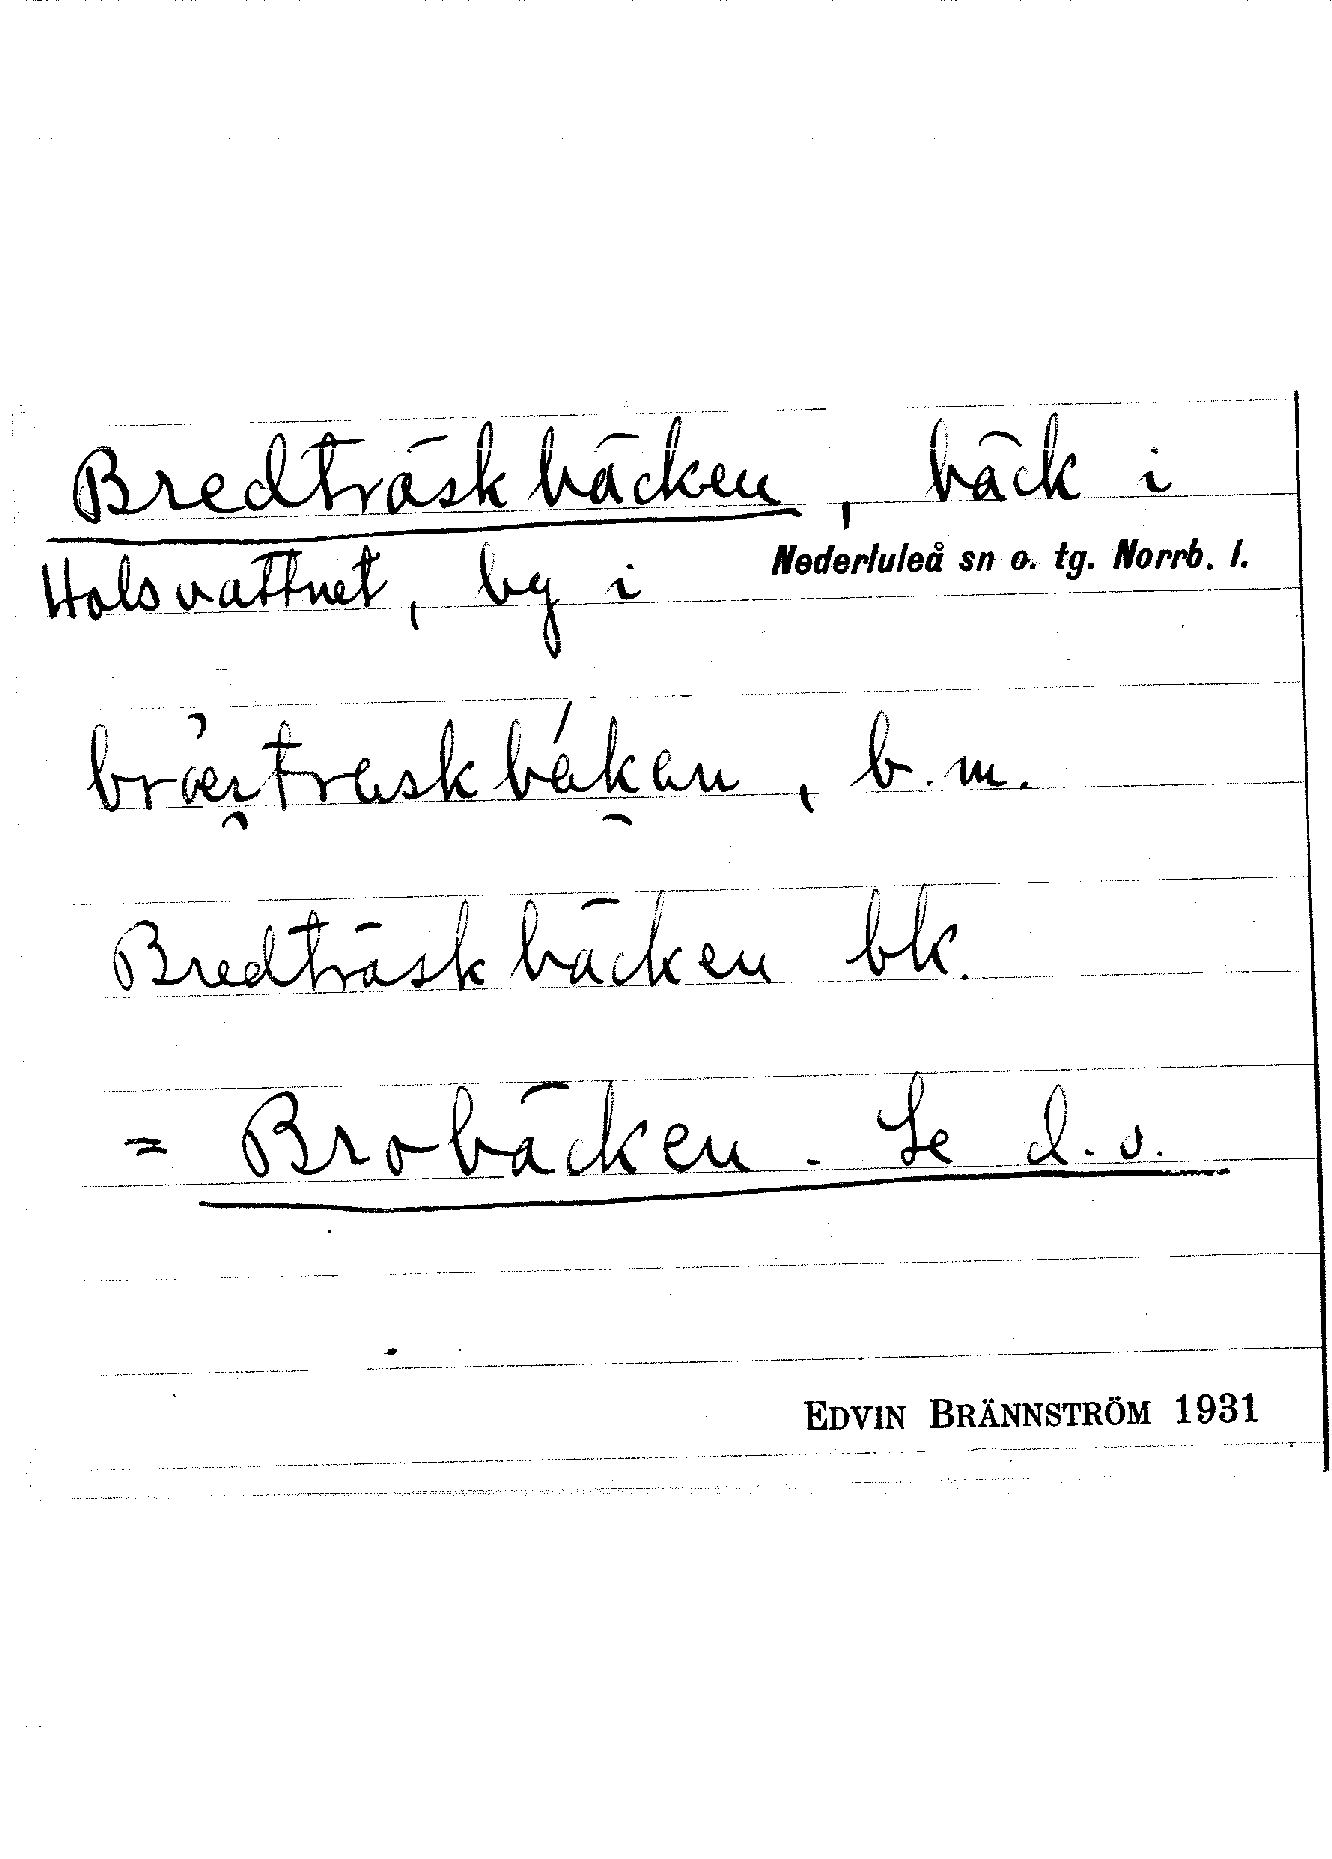 Bredträskbäcken, bäck i
Holsvattnet, by i Nederluleå sn o. tg. Norrb. l.
b. m.
Bredträskbäcken bk.
= Brobäcken. Se d. o.
EDVIN BRÄNNSTRÖM 1931